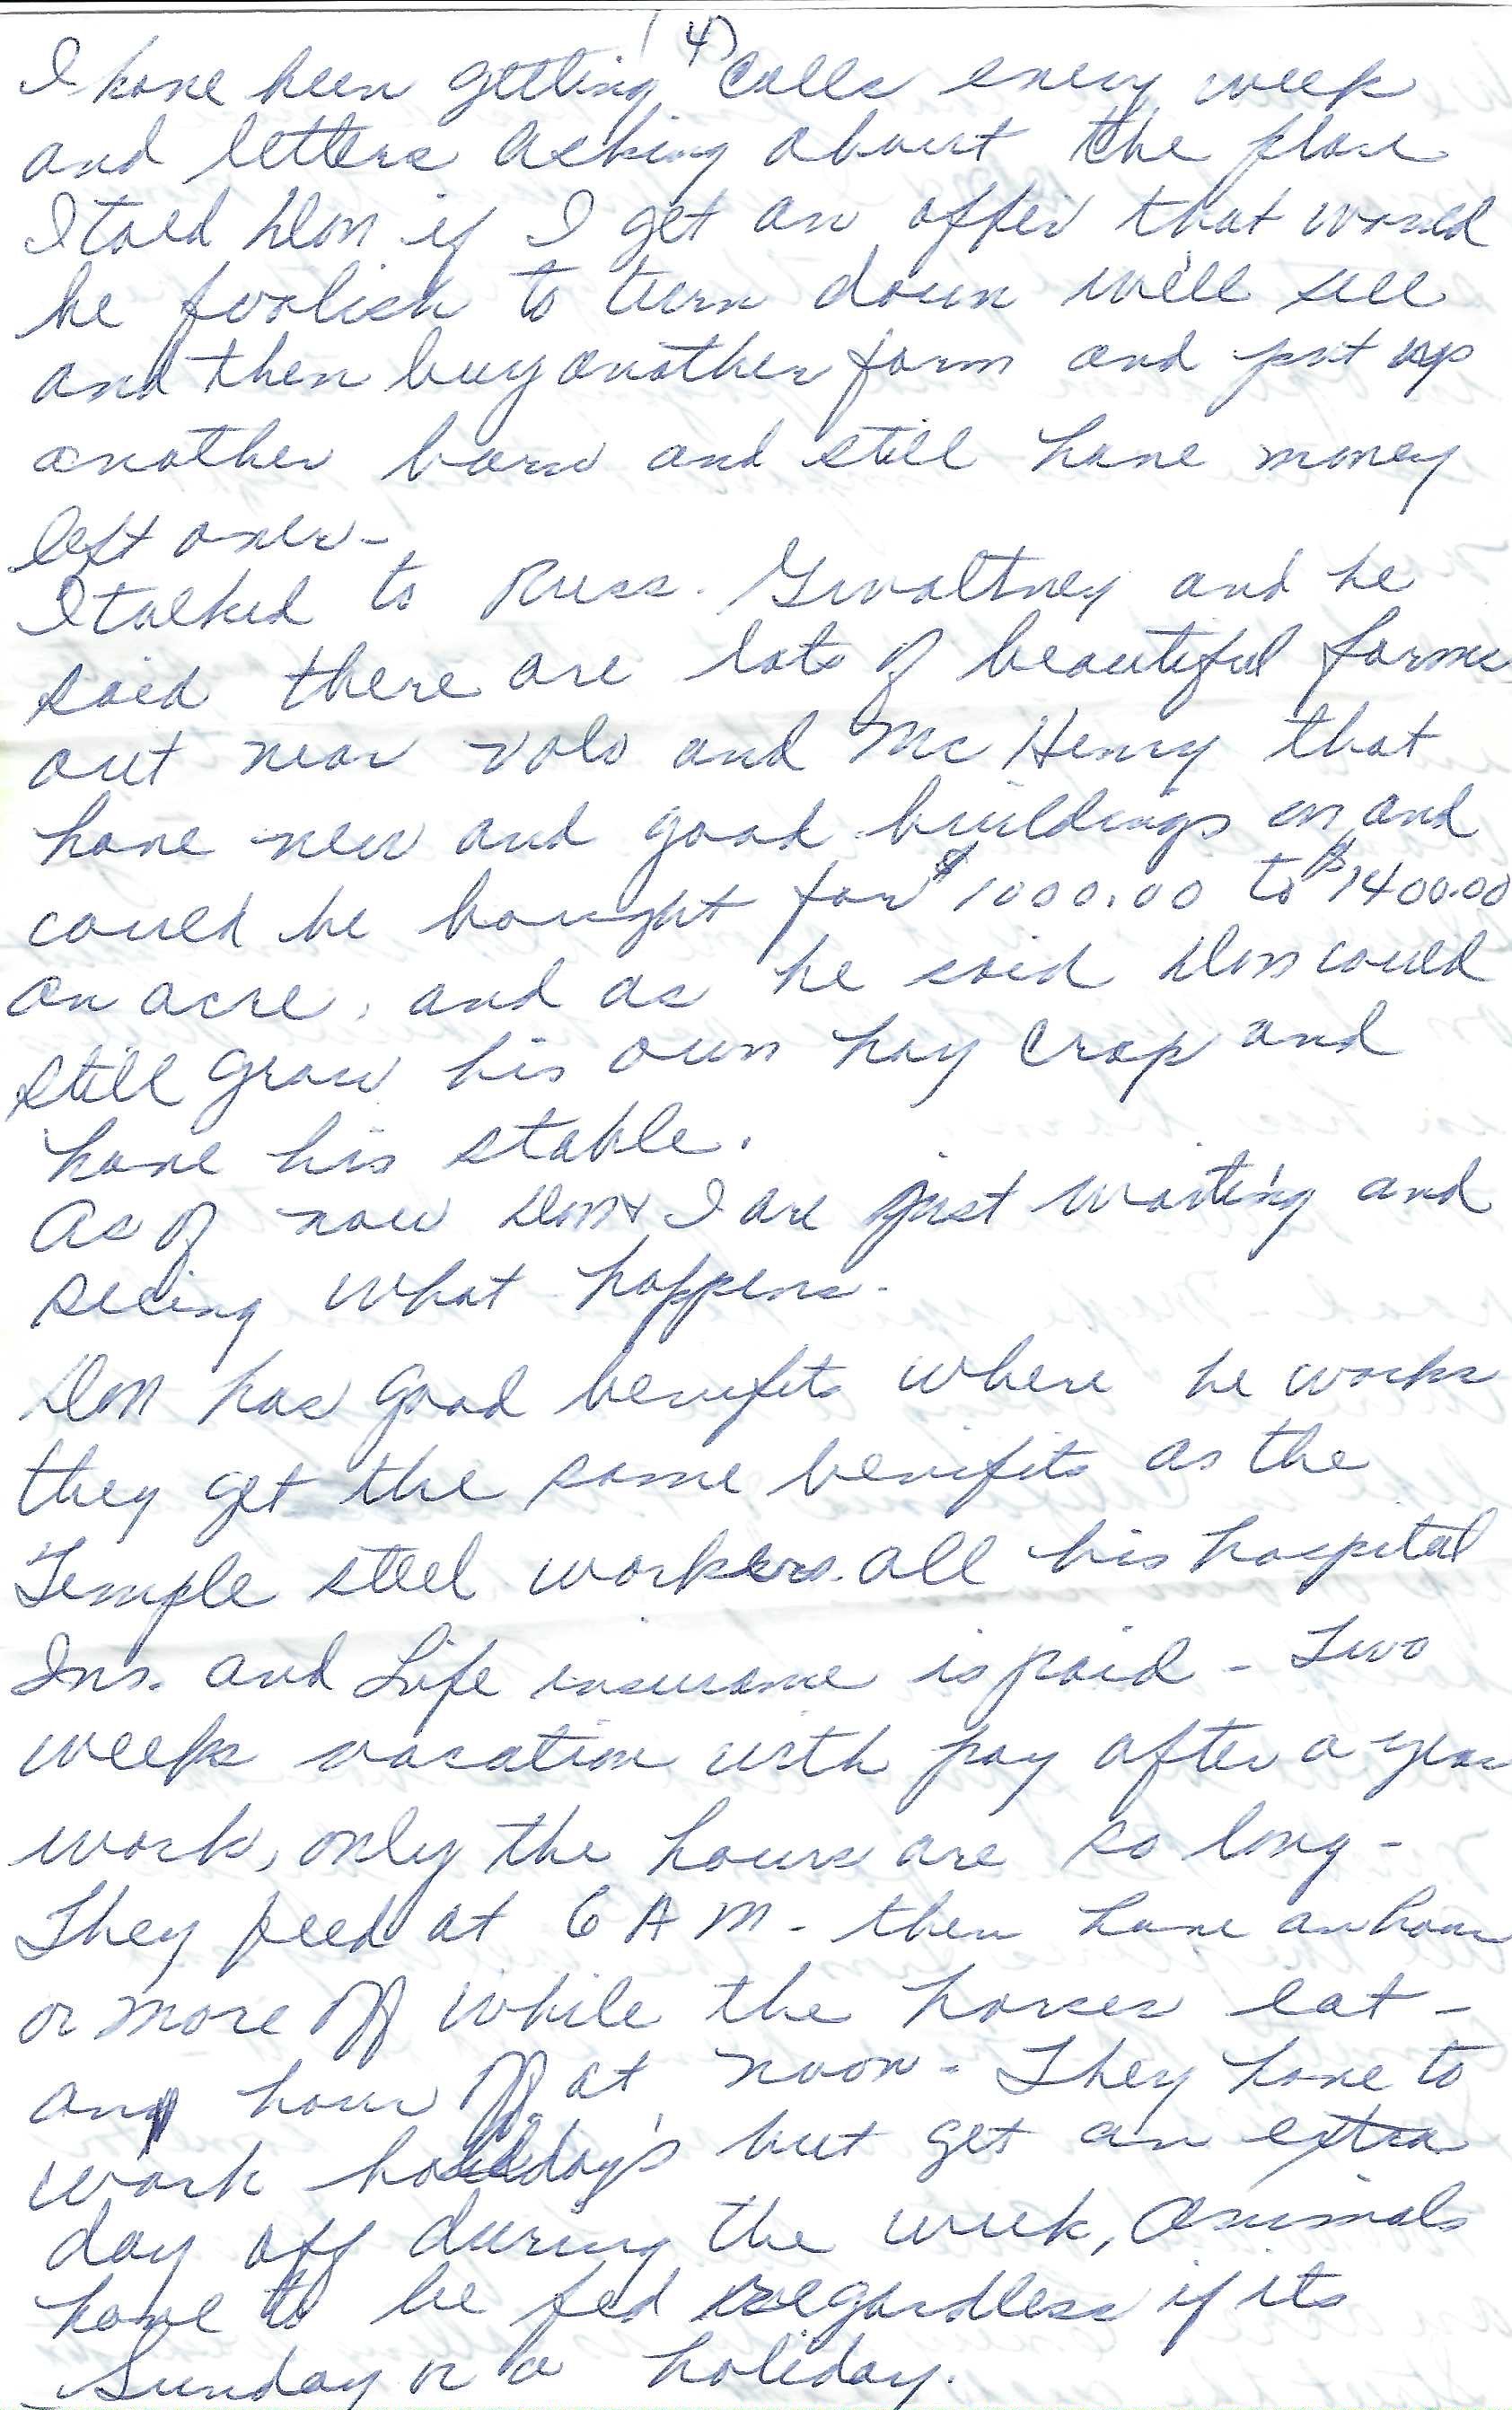 4)
I have been getting calls every week
and letters asking about the place
I told Don if I get an offer that would
be foolish to turn down we'll sell
and then buy another farm and put up
another barn and still have money
left over -
I talked to Russ. Gwaltney and he
said there are lots of beautiful farms
out near Volo and Mc Henry that
have new and good buildings on and
could be bought for $1000.00 to $1400.00
an acre, and as he said Don could
still grow his own hay crop and
have his stable.
As of now Don & I are just waiting and
seeing what happens.
Don has good benefits where he works
they get the same benifits as the
Temple steel workers. all his hospital
Ins. and Life insurance is paid - Two
weeks vacation with pay after a year
work, only the hours are so long -
They feed at 6 A M - then have an hour
or more off while the horses eat -
an hour off at noon - They have to
work holiday's but get an extra
day off during the week, Animals
have to be fed regardless if its
Sunday or a holiday.